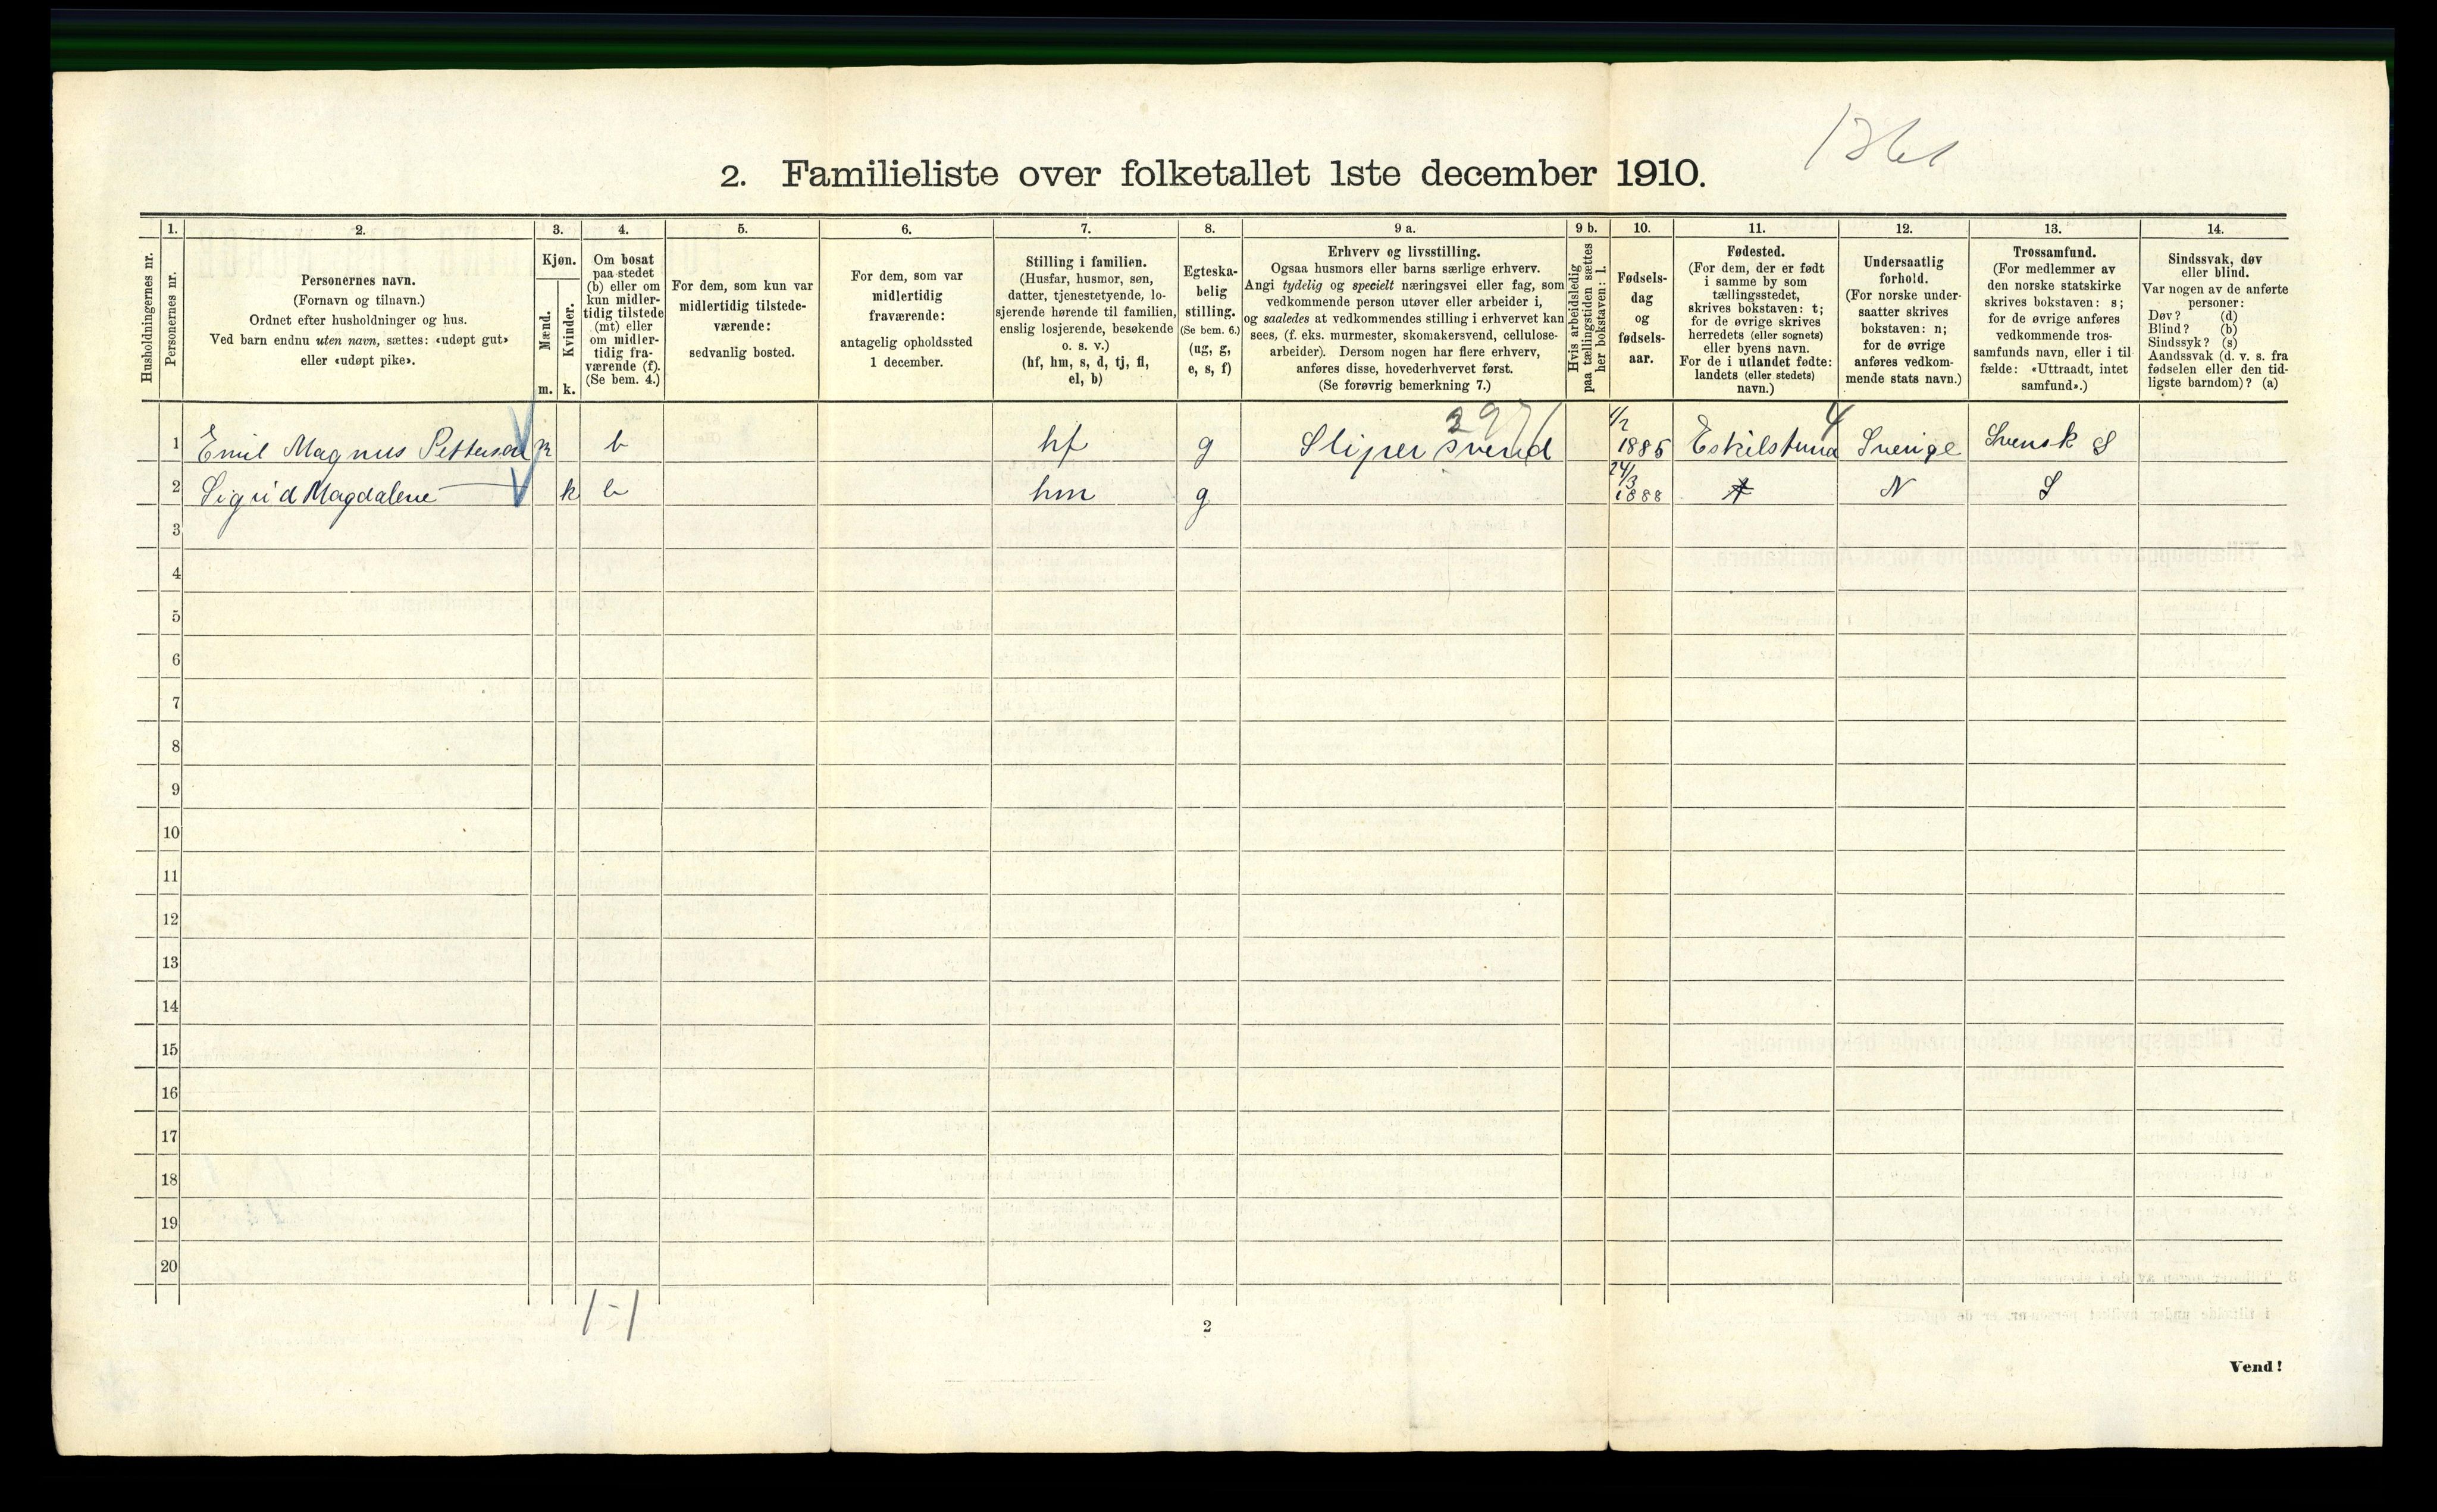 2. Familieliste over folketallet 1ste december 1910.
Husholdningernes nr.
1.
Personernes nr.
2.
Personernes navn.
(Fornavn og tilnavn.)
Ordnet efter husholdninger og hus.
Ved barn endnu uten navn, sættes: «udøpt gut»
eller «udøpt pike».
3.
Kjøn.
Mænd.
m.
Kvinder.
k.
4.
Om bosat
paa stedet
(b) eller om
kun midler-
tidig tilstede
(mt) eller
om midler-
tidig fra-
værende (f).
(Se bem. 4.)
5.
For dem, som kun var
midlertidig tilstede-
værende:
sedvanlig bosted.
6.
For dem, som var
midlertidig
fraværende:
antagelig opholdssted
1 december.
7.
Stilling i familien.
(Husfar, husmor, søn,
datter, tjenestetyende, lo-
sjerende hørende til familien,
enslig losjerende, besøkende
o. s. v.)
(hf, hm, s, d, tj, fl,
el, b)
8.
Egteska-
belig
stilling.
(Se bem. 6.)
(ug, g,
e, s, f)
9 a.
Erhverv og livsstilling.
Ogsaa husmors eller barns særlige erhverv.
Angi tydelig og specielt næringsvei eller fag, som
vedkommende person utøver eller arbeider i,
og saaledes at vedkommendes stilling i erhvervet kan
sees, (f. eks. murmester, skomakersvend, cellulose-
arbeider). Dersom nogen har flere erhverv,
anføres disse, hovederhvervet først.
(Se forøvrig bemerkning 7.)
9 b.
Hvis arbeidsledig
paa tællingstiden sættes
her bokstaven: l.
10.
Fødsels-
dag
og
fødsels-
aar.
11.
Fødested.
(For dem, der er født
i samme by som
tællingsstedet,
skrives bokstaven: t;
for de øvrige skrives
herredets (eller sognets)
eller byens navn.
For de i utlandet fødte:
landets (eller stedets)
navn.)
12.
Undersaatlig
forhold.
(For norske under-
saatter skrives
bokstaven: n;
for de øvrige
anføres vedkom-
mende stats navn.)
13.
Trossamfund.
(For medlemmer av
den norske statskirke
skrives bokstaven: s;
for de øvrige anføres
vedkommende tros-
samfunds navn, eller i til-
fælde: «Uttraadt, intet
samfund».)
14.
Sindssvak, døv
eller blind.
Var nogen av de anførte
personer:
Døv? (d)
Blind? (b)
Sindssyk? (s)
Aandssvak (d. v. s. fra
fødselen eller den tid-
ligste barndom)? (a)
1 Emil Magnus Petterson b hf g Sliper svend 1/2 1886 Eskilstuna Sverige Svensk S
2 Sigrid Magdalene k b hm g 24/3 1888 t N S
3
4
5
6
7
8
9
10
11
12
13
14
15
16
17
18
19
20
1-1
2
Vend!